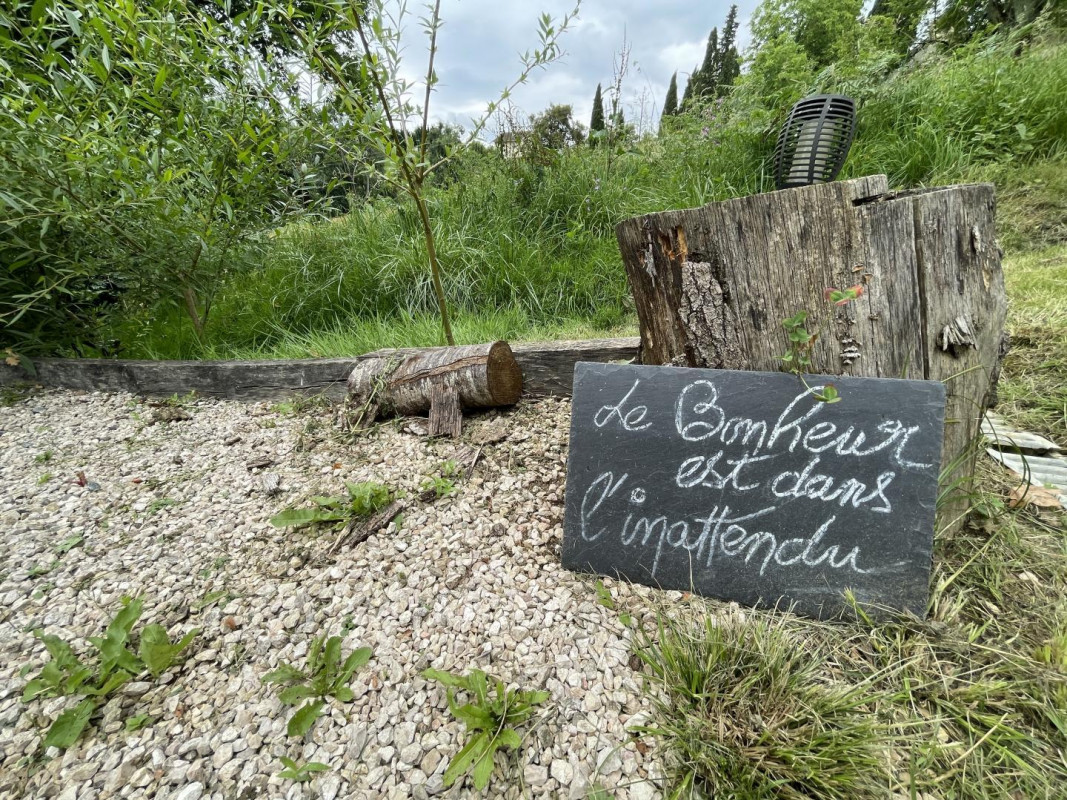 Le Bonheur
est dans
l'inattendu